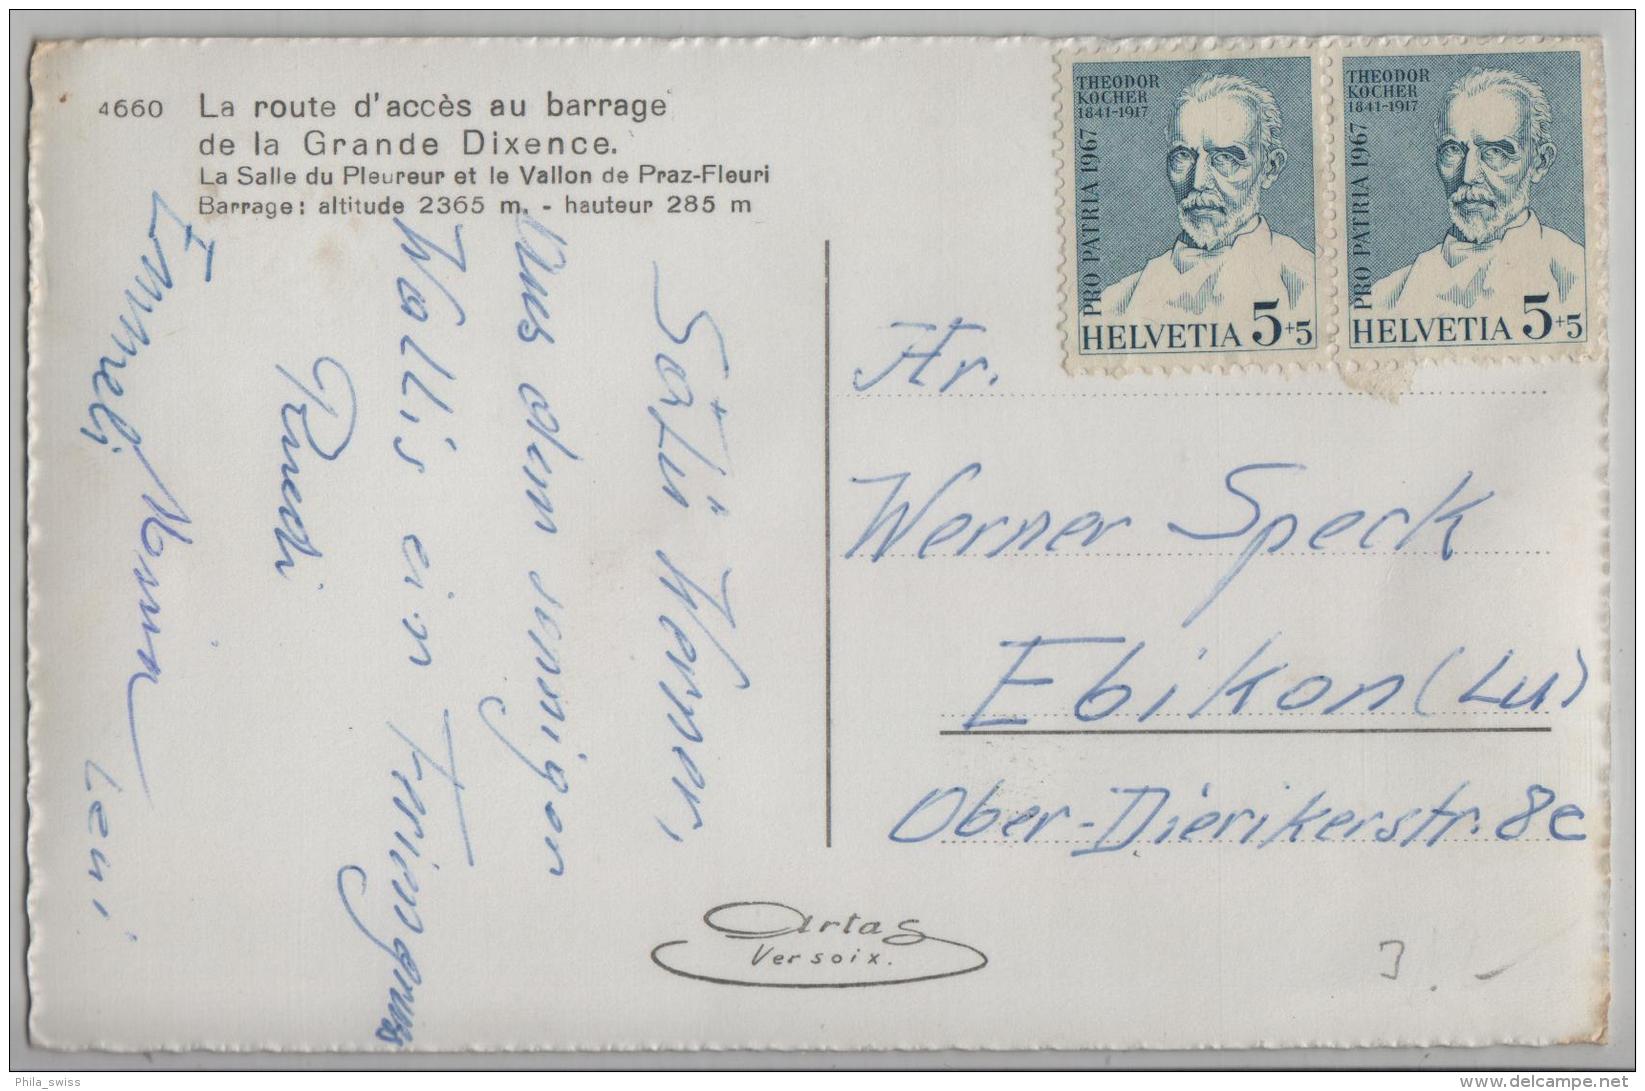 4660 La route d'accès au barrage
de la Grande Dixence.
La Salle du Pleureur et le Vallon de Praz-Fleuri
Barrage: altitude 2365 m. - hauteur 285 m
THEODOR
KOCHER
1841-1917
PRO PATRIA 1967
HELVETIA 5+5
THEODOR
KOCHER
1841-1917
PRO PATRIA 1967
HELVETIA 5+5
Sälü Werner,
Aus dem sonnigen
Wallis ein Feriengruss
Ruedi
Emmeli
Leni
Hr.
Werner Speck
Ebikon (Lu)
Ober-Dierikerstr. 8c
Artas
Versoix.
3.-
Phila_swiss
www.delcampe.net